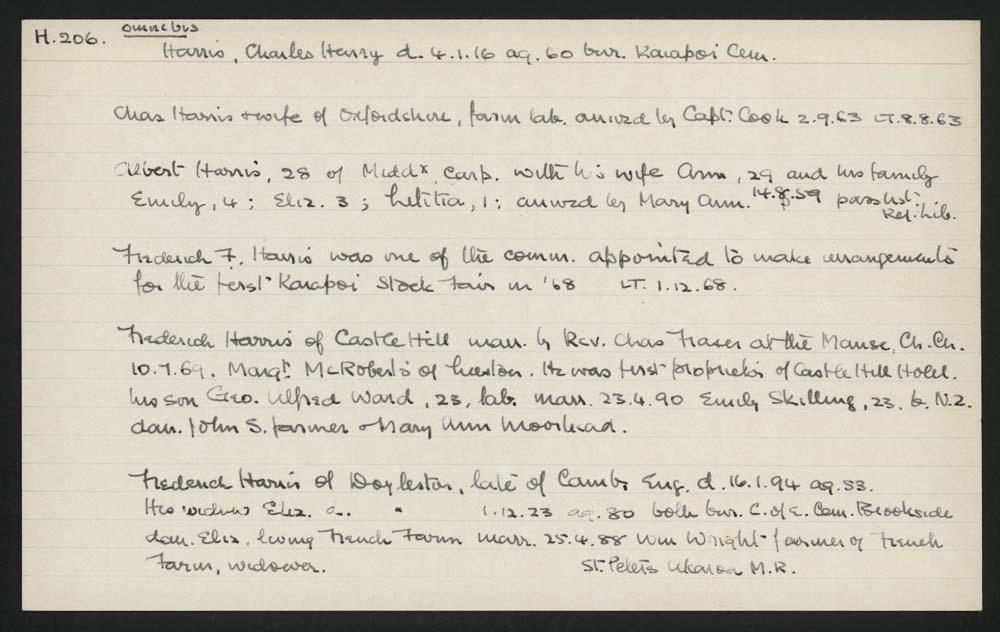 H.206. omnibus
Harris, Charles Henry d. 4.1.16 ag. 60 bur. Kaiapoi Cem.
Chas Harris & wife of Oxfordshire, farm lab. arrived by Capt. Cook 2.9.63 LT. 8.8.63
Albert Harris, 28 of Middx carp. with his wife Ann, 29 and his family
Emily, 4; Eliz. 3; Letitia, 1; arrived by Mary Ann. 14.8.59 pass list:
Ref. Lib.
Frederick F. Harris was one of the comm. appointed to make arrangements
for the first Kaiapoi Stock Fair in '68 LT. 1.12.68.
Frederick Harris of Castle Hill marr. by Rev. Chas Fraser at the Manse, Ch. Ch.
10.7.69. Margt. McRoberts of Leeston. He was first proprietor of Castle Hill Hotel.
his son Geo. Alfred Ward, 23, lab. marr. 23.4.90 Emily Skilling, 23, b. N.Z.
dau. John S. farmer & Mary Ann Moorhead.
Frederick Harris of Doyleston, late of Cambs Eng. d. 16.1.94 ag. 53.
His widow Eliz. d. " 1.12.23 ag. 80 both bur. C. of E. Cem. Brookside
dau. Eliz, living French Farm marr. 25.4.88 Wm Wright farmer of French
Farm, widower. St. Peters Akaroa M.R.